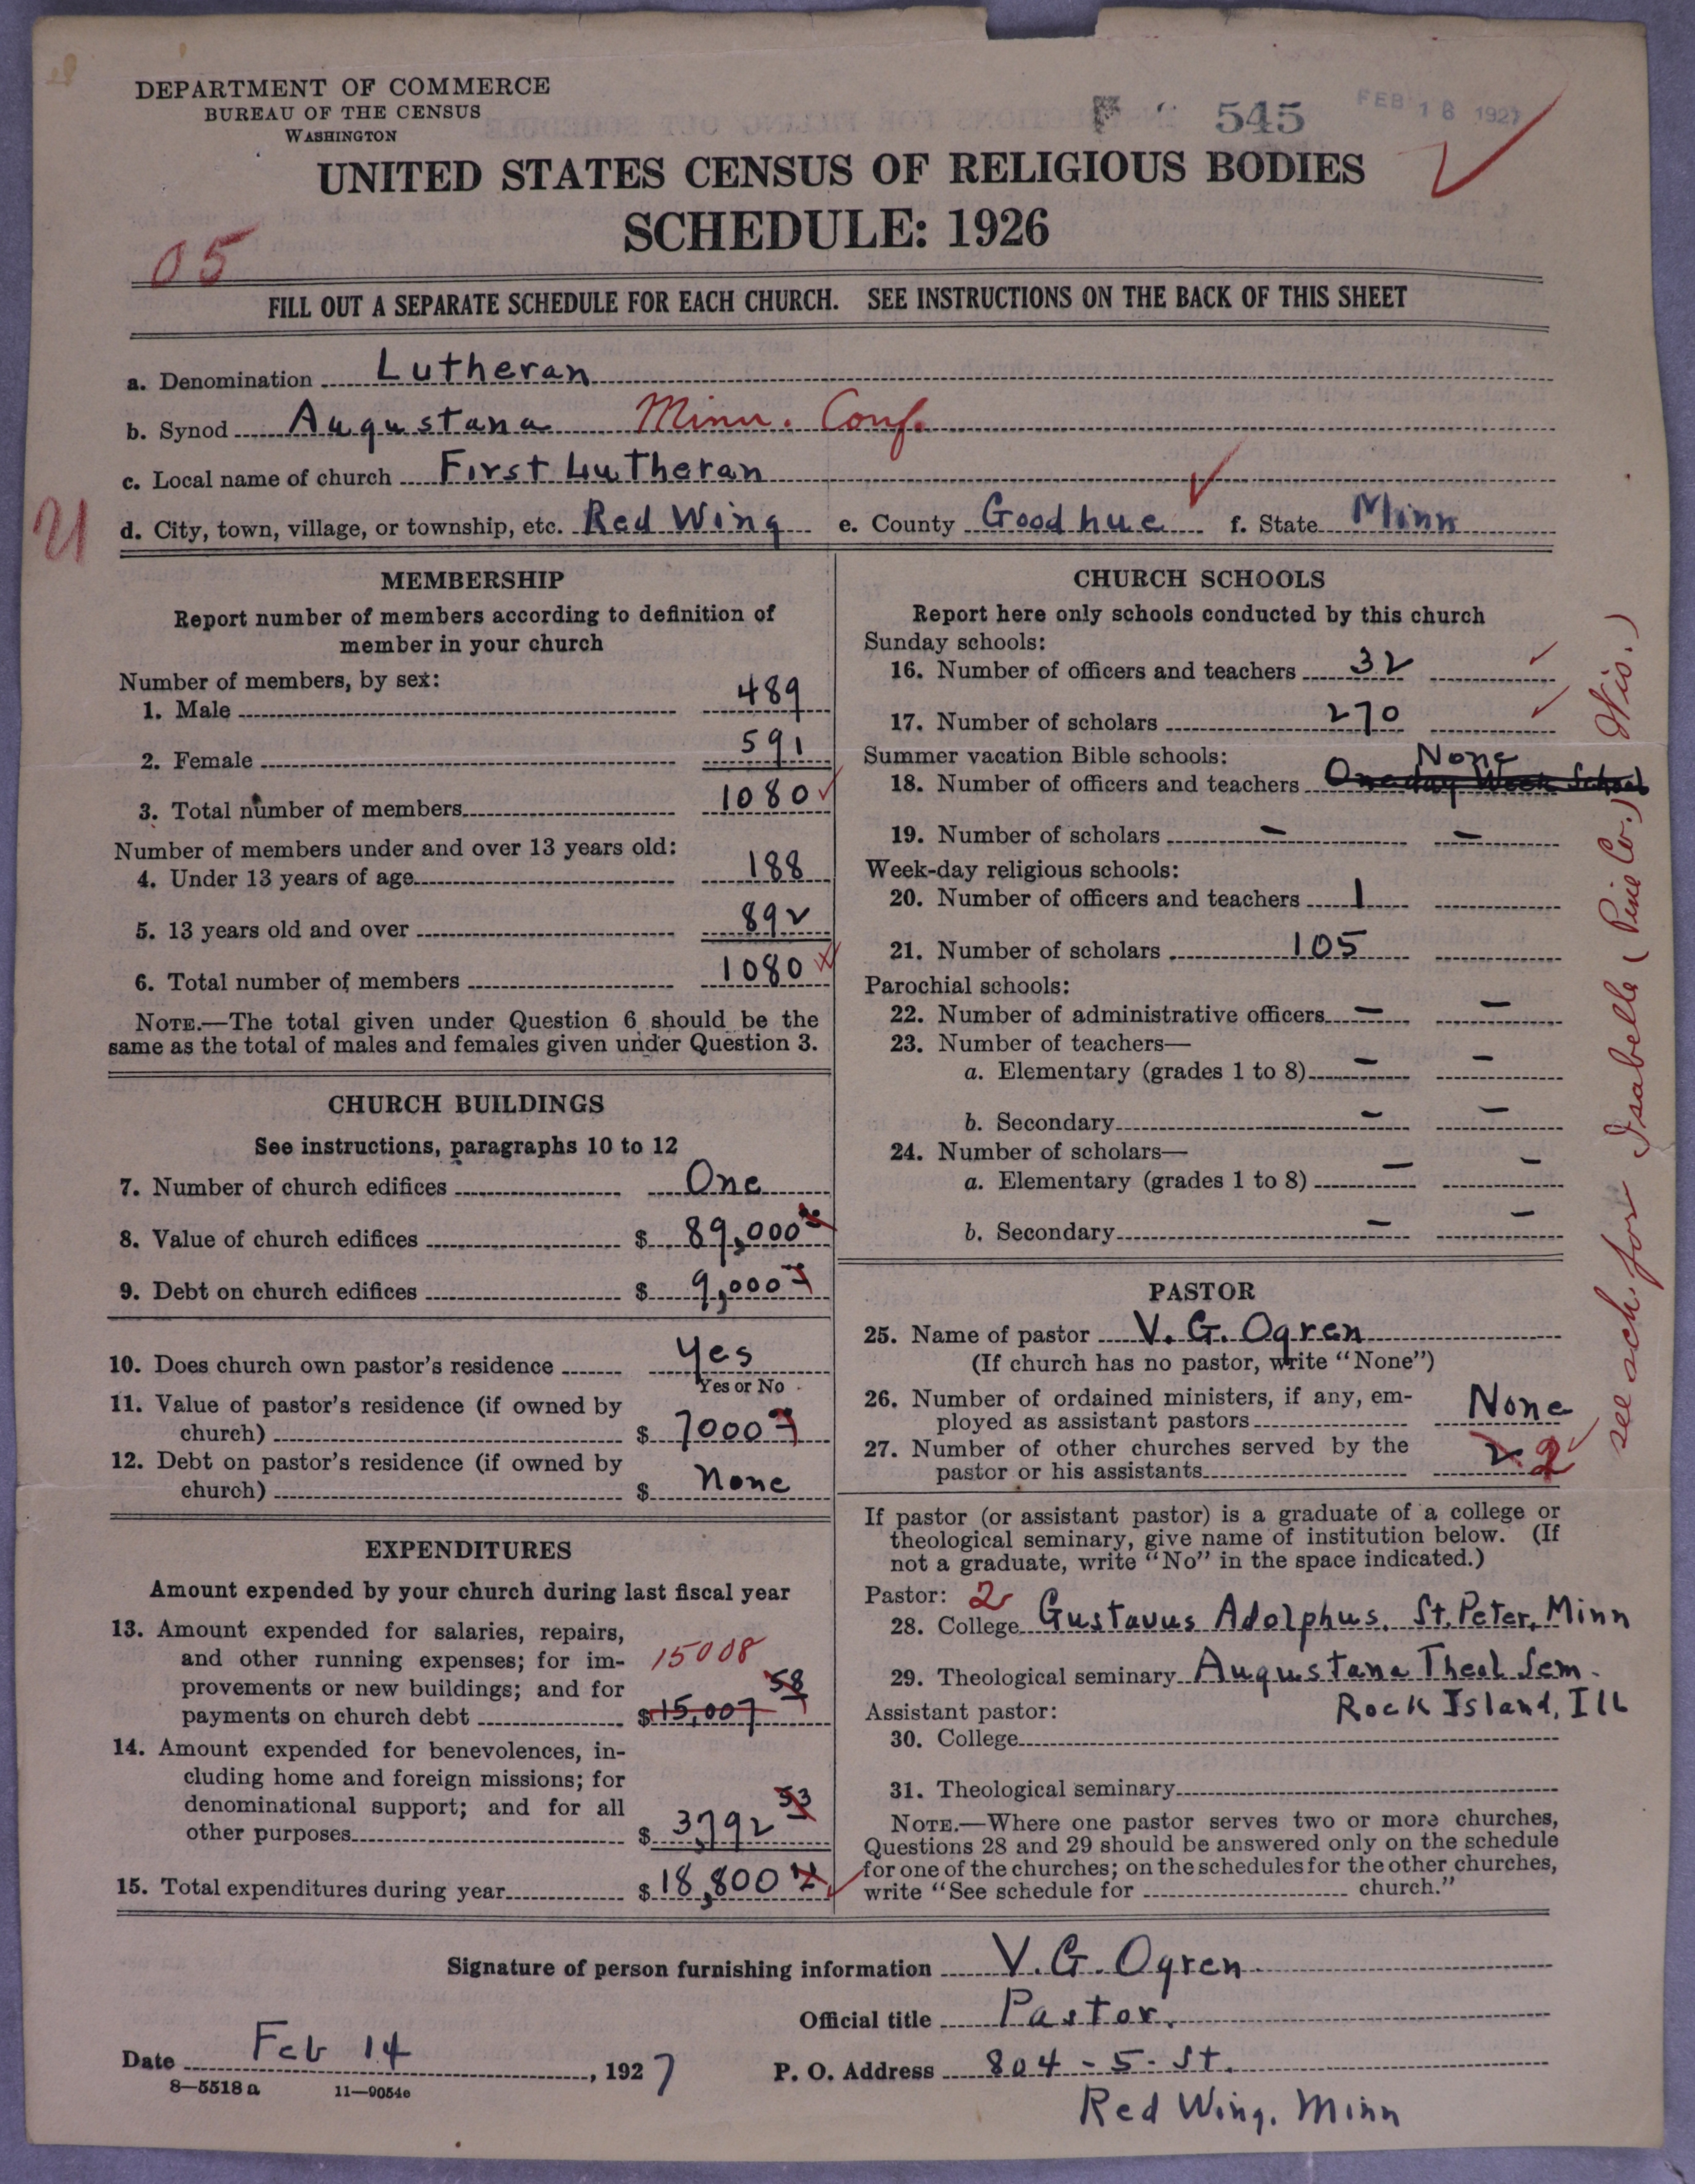 DEPARTMENT OF COMMERCE
BUREAU OF THE CENSUS
WASHINGTON
545
FEB 18 1927
UNITED STATES CENSUS OF RELIGIOUS BODIES
SCHEDULE: 1926
05
FILL OUT A SEPARATE SCHEDULE FOR EACH CHURCH. SEE INSTRUCTIONS ON THE BACK OF THIS SHEET
a. Denomination Lutheran
b. Synod Augustana Minn. Conf.
c. Local name of church First Lutheran
d. City, town, village, or township, etc. Red Wing e. County Goodhue f. State Minn
MEMBERSHIP
Report number of members according to definition of
member in your church
Number of members, by sex:
1. Male 489
2. Female 591
3. Total number of members 1080
Number of members under and over 13 years old:
4. Under 13 years of age 188
5. 13 years old and over 892
6. Total number of members 1080
NOTE.—The total given under Question 6 should be the
same as the total of males and females given under Question 3.
CHURCH BUILDINGS
See instructions, paragraphs 10 to 12
7. Number of church edifices One
8. Value of church edifices $ 89,000
9. Debt on church edifices $ 9,000
10. Does church own pastor's residence Yes
Yes or No
11. Value of pastor's residence (if owned by
church) $ 7000
12. Debt on pastor's residence (if owned by
church) $ None
EXPENDITURES
Amount expended by your church during last fiscal year
13. Amount expended for salaries, repairs,
and other running expenses; for im-
15008
provements or new buildings; and for
payments on church debt $ 15,007 58
14. Amount expended for benevolences, in-
cluding home and foreign missions; for
denominational support; and for all
other purposes $ 3,792 53
15. Total expenditures during year $ 18,800
CHURCH SCHOOLS
Report here only schools conducted by this church
Sunday schools:
16. Number of officers and teachers 32
17. Number of scholars 270
Summer vacation Bible schools:
None
18. Number of officers and teachers One day Week School
19. Number of scholars — —
Week-day religious schools:
20. Number of officers and teachers 1
21. Number of scholars 105
Parochial schools:
22. Number of administrative officers — —
23. Number of teachers—
a. Elementary (grades 1 to 8) — —
b. Secondary — —
24. Number of scholars—
a. Elementary (grades 1 to 8) — —
b. Secondary — —
PASTOR
25. Name of pastor V. G. Ogren
(If church has no pastor, write "None")
26. Number of ordained ministers, if any, em-
ployed as assistant pastors None
27. Number of other churches served by the
pastor or his assistants 2 2
If pastor (or assistant pastor) is a graduate of a college or
theological seminary, give name of institution below. (If
not a graduate, write "No" in the space indicated.)
Pastor: 2
28. College Gustavus Adolphus. St. Peter, Minn
29. Theological seminary Augustana Theol Sem.
Rock Island, Ill
Assistant pastor:
30. College
31. Theological seminary
NOTE.—Where one pastor serves two or more churches,
Questions 28 and 29 should be answered only on the schedule
for one of the churches; on the schedules for the other churches,
write "See schedule for church."
see sch. for Isabelle (Pine Co.) Wis.)
Signature of person furnishing information V. G. Ogren
Official title Pastor.
Date Feb 14, 1927
P. O. Address 804 - 5 - St.
Red Wing, Minn
8—5518 a 11—9054e